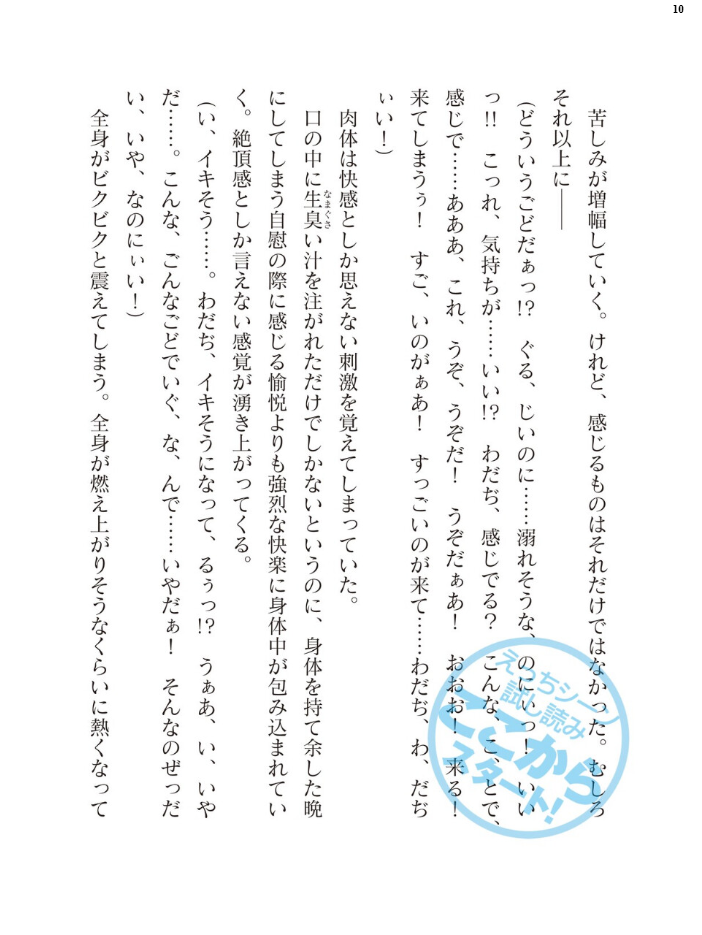 10
苦しみが増幅していく。けれど、感じるものはそれだけではなかった。むしろ
それ以上に――
(どういうごどだぁっ!? ぐる、じいのに……溺れそうな、のにいっ! いい
っ!! こっれ、気持ちが……いい!? わだぢ、感じでる? こんな、こ、とで、
感じで……あああ、これ、うぞ、うぞだ! うぞだぁあ! おおお! 来る!
来てしまうぅ! すご、いのがぁあ! すっごいのが来て……わだぢ、わ、だぢ
ぃい!)
肉体は快感としか思えない刺激を覚えてしまっていた。
口の中に生臭(なまぐさ)い汁を注がれただけでしかないというのに、身体を持て余した晩
にしてしまう自慰の際に感じる愉悦よりも強烈な快楽に身体中が包み込まれてい
く。絶頂感としか言えない感覚が湧き上がってくる。
(い、イキそう……。わだぢ、イキそうになって、るぅっ!? うぁあ、い、いや
だ……。こんな、ごんなごどでいぐ、な、んで……いやだぁ! そんなのぜっだ
い、いや、なのにぃい!)
全身がビクビクと震えてしまう。全身が燃え上がりそうなくらいに熱くなって
えっちシーン
試し読み
ここから
スタート!